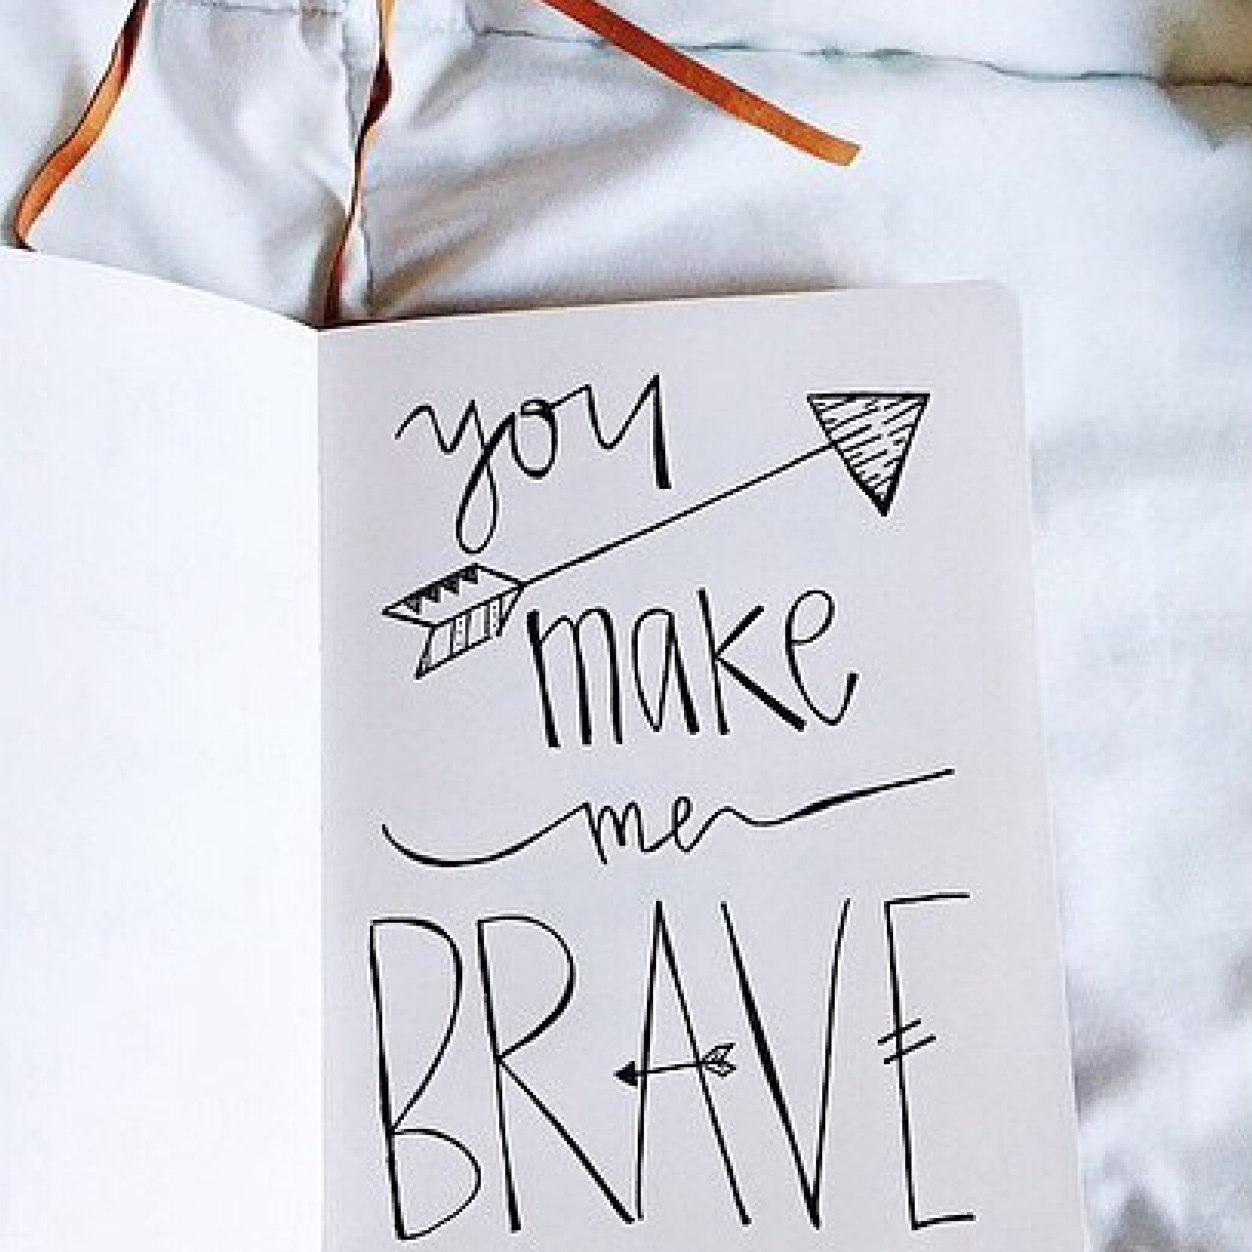 you
make
me
BRAVE